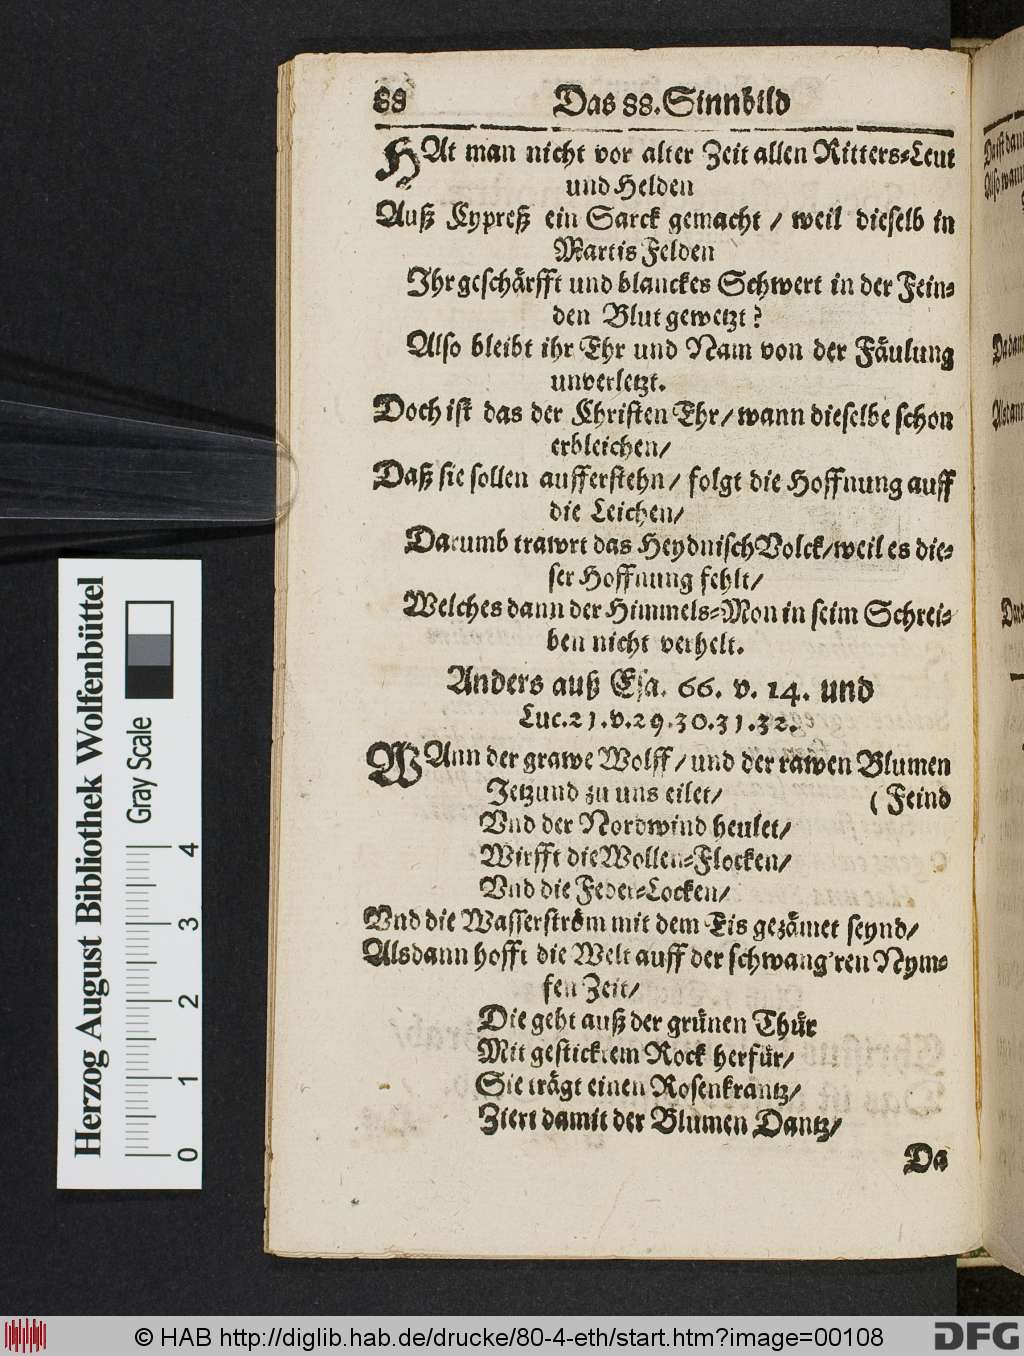 88 Das 88. Sinnbild
HAt man nicht vor alter Zeit allen Ritters-Leut
und Helden
Auß Cypreß ein Sarck gemacht / weil dieselb in
Martis Felden
Ihr geschärfft und blanckes Schwert in der Fein-
den Blut gewetzt?
Also bleibt ihr Ehr und Nam von der Fäulung
unverletzt.
Doch ist das der Christen Ehr / wann dieselbe schon
erbleichen /
Daß sie sollen aufferstehn / folgt die Hoffnung auff
die Leichen /
Darumb trawrt das Heydnisch Volck / weil es die-
ser Hoffnung fehlt /
Welches dann der Himmels-Mon in seim Schrei-
ben nicht verhelt.
Anders auß Esa. 66. v. 14. und
Luc. 21. v. 29. 30. 31. 32.
WAnn der grawe Wolff / und der rawen Blumen
Jetzund zu uns eilet / ( Feind
Und der Nordwind heulet /
Wirfft die Wollen-Flocken /
Und die Feder-Locken /
Und die Wasserström mit dem Eis gezämet seynd /
Alsdann hofft die Welt auff der schwang'ren Nym-
fen Zeit /
Die geht auß der grünen Thür
Mit gesticktem Rock herfür /
Sie trägt einen Rosenkrantz /
Ziert damit der Blumen Dantz /
Da
Herzog August Bibliothek Wolfenbüttel
Gray Scale
0 1 2 3 4
© HAB http://diglib.hab.de/drucke/80-4-eth/start.htm?image=00108
DFG